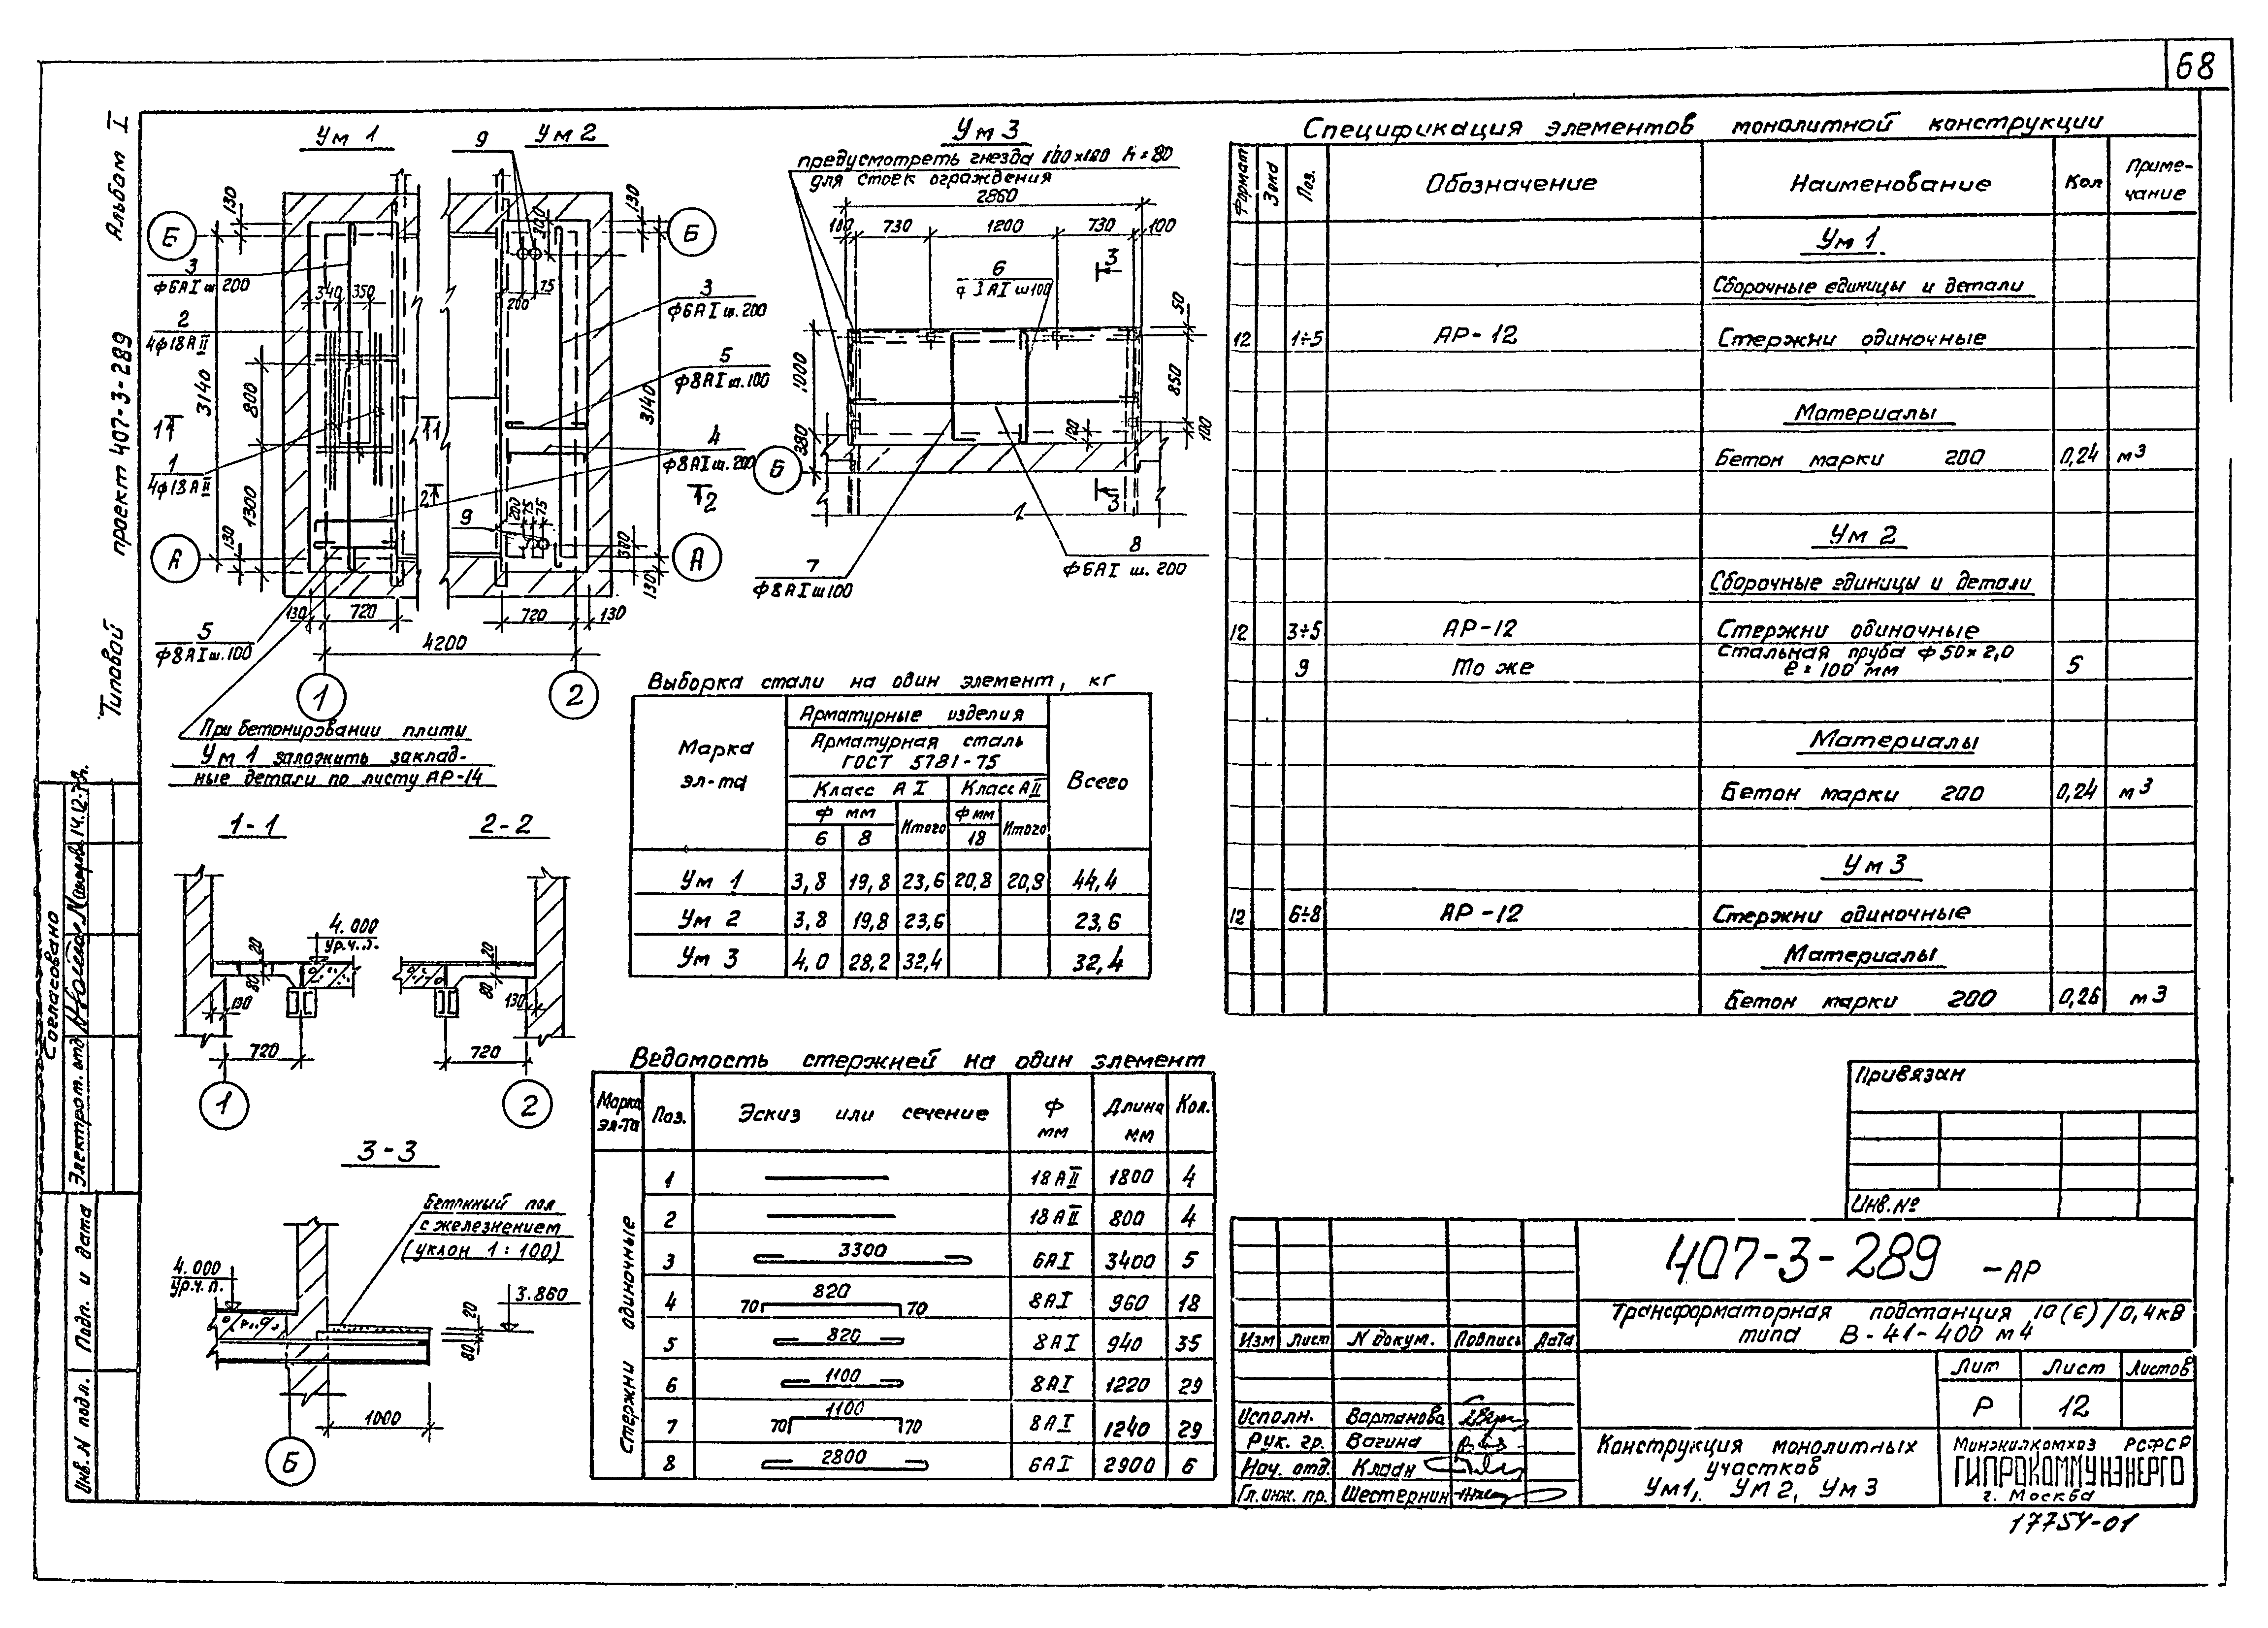 68
Альбом I
Типовой проект 407-3-289
Ум 1
Ум 2
9
130
Б
3
ф6АI ш 200
340
350
2
4ф18АII
3140
800
1
4ф18АII
1300
130
А
130
720
4200
720
130
5
ф8АI ш.100
1
2
При бетонировании плиты
Ум 1 заложить заклад-
ные детали по листу АР-14
130
Б
300
75
200
3
ф6АI ш. 200
5
ф8АI ш.100
3140
4
ф8АI ш.200
2
9
200
75
75
300
А
130
Ум 3
предусмотреть гнезда 100х100 h=80
для стоек ограждения
2860
100
730
1200
730
100
3
6
50
1000
850
380
120
100
Б
3
7
ф8АI ш100
8
ф6АI ш. 200
1-1
2-2
4.000
ур.ч.п.
20
80
130
720
1
20
80
130
720
2
3-3
Бетонный пол
с железнением
(уклон 1:100)
4.000
ур.ч.п.
3.860
20
80
1000
Б
Выборка стали на один элемент, кг
Марка эл-та
Арматурные изделия
Арматурная сталь
ГОСТ 5781-75
Класс АI
Класс АII
Всего
ф мм
Итого
ф мм
Итого
6 8 18
Ум 1 3,8 19,8 23,6 20,8 20,8 44,4
Ум 2 3,8 19,8 23,6 23,6
Ум 3 4,0 28,2 32,4 32,4
Ведомость стержней на один элемент
Марка эл-та Поз. Эскиз или сечение ф мм Длина мм Кол.
Стержни одиночные
1 18АII 1800 4
2 18АII 800 4
3 3300 6АI 3400 5
4 70 820 70 8АI 960 18
5 820 8АI 940 35
6 1100 8АI 1220 29
7 70 1100 70 8АI 1240 29
8 2800 6АI 2900 6
Спецификация элементов монолитной конструкции
Формат Зона Поз. Обозначение Наименование Кол Приме-чание
Ум 1
Сборочные единицы и детали
12 1÷5 АР-12 Стержни одиночные
Материалы
Бетон марки 200 0,24 м3
Ум 2
Сборочные единицы и детали
12 3÷5 АР-12 Стержни одиночные
9 То же Стальная труба ф50х2,0
ℓ=100 мм 5
Материалы
Бетон марки 200 0,24 м3
Ум 3
12 6÷8 АР-12 Стержни одиночные
Материалы
Бетон марки 200 0,26 м3
Привязан
Инв.№
407-3-289 -АР
Трансформаторная подстанция 10(6)/0,4кВ
типа В-41-400 м4
Изм Лист N докум. Подпись Дата
Лит Лист Листов
Р 12
Исполн. Вартанова
Рук. гр. Вагина
Нач. отд. Клаан
Гл.инж. пр. Шестернин
Конструкция монолитных
участков
Ум1, Ум2, Ум3
Минжилкомхоз РСФСР
ГИПРОКОММУНЭНЕРГО
г. Москва
17754-01
Согласовано
Электрот. отд.
Подп. и дата
Инв. N подл.